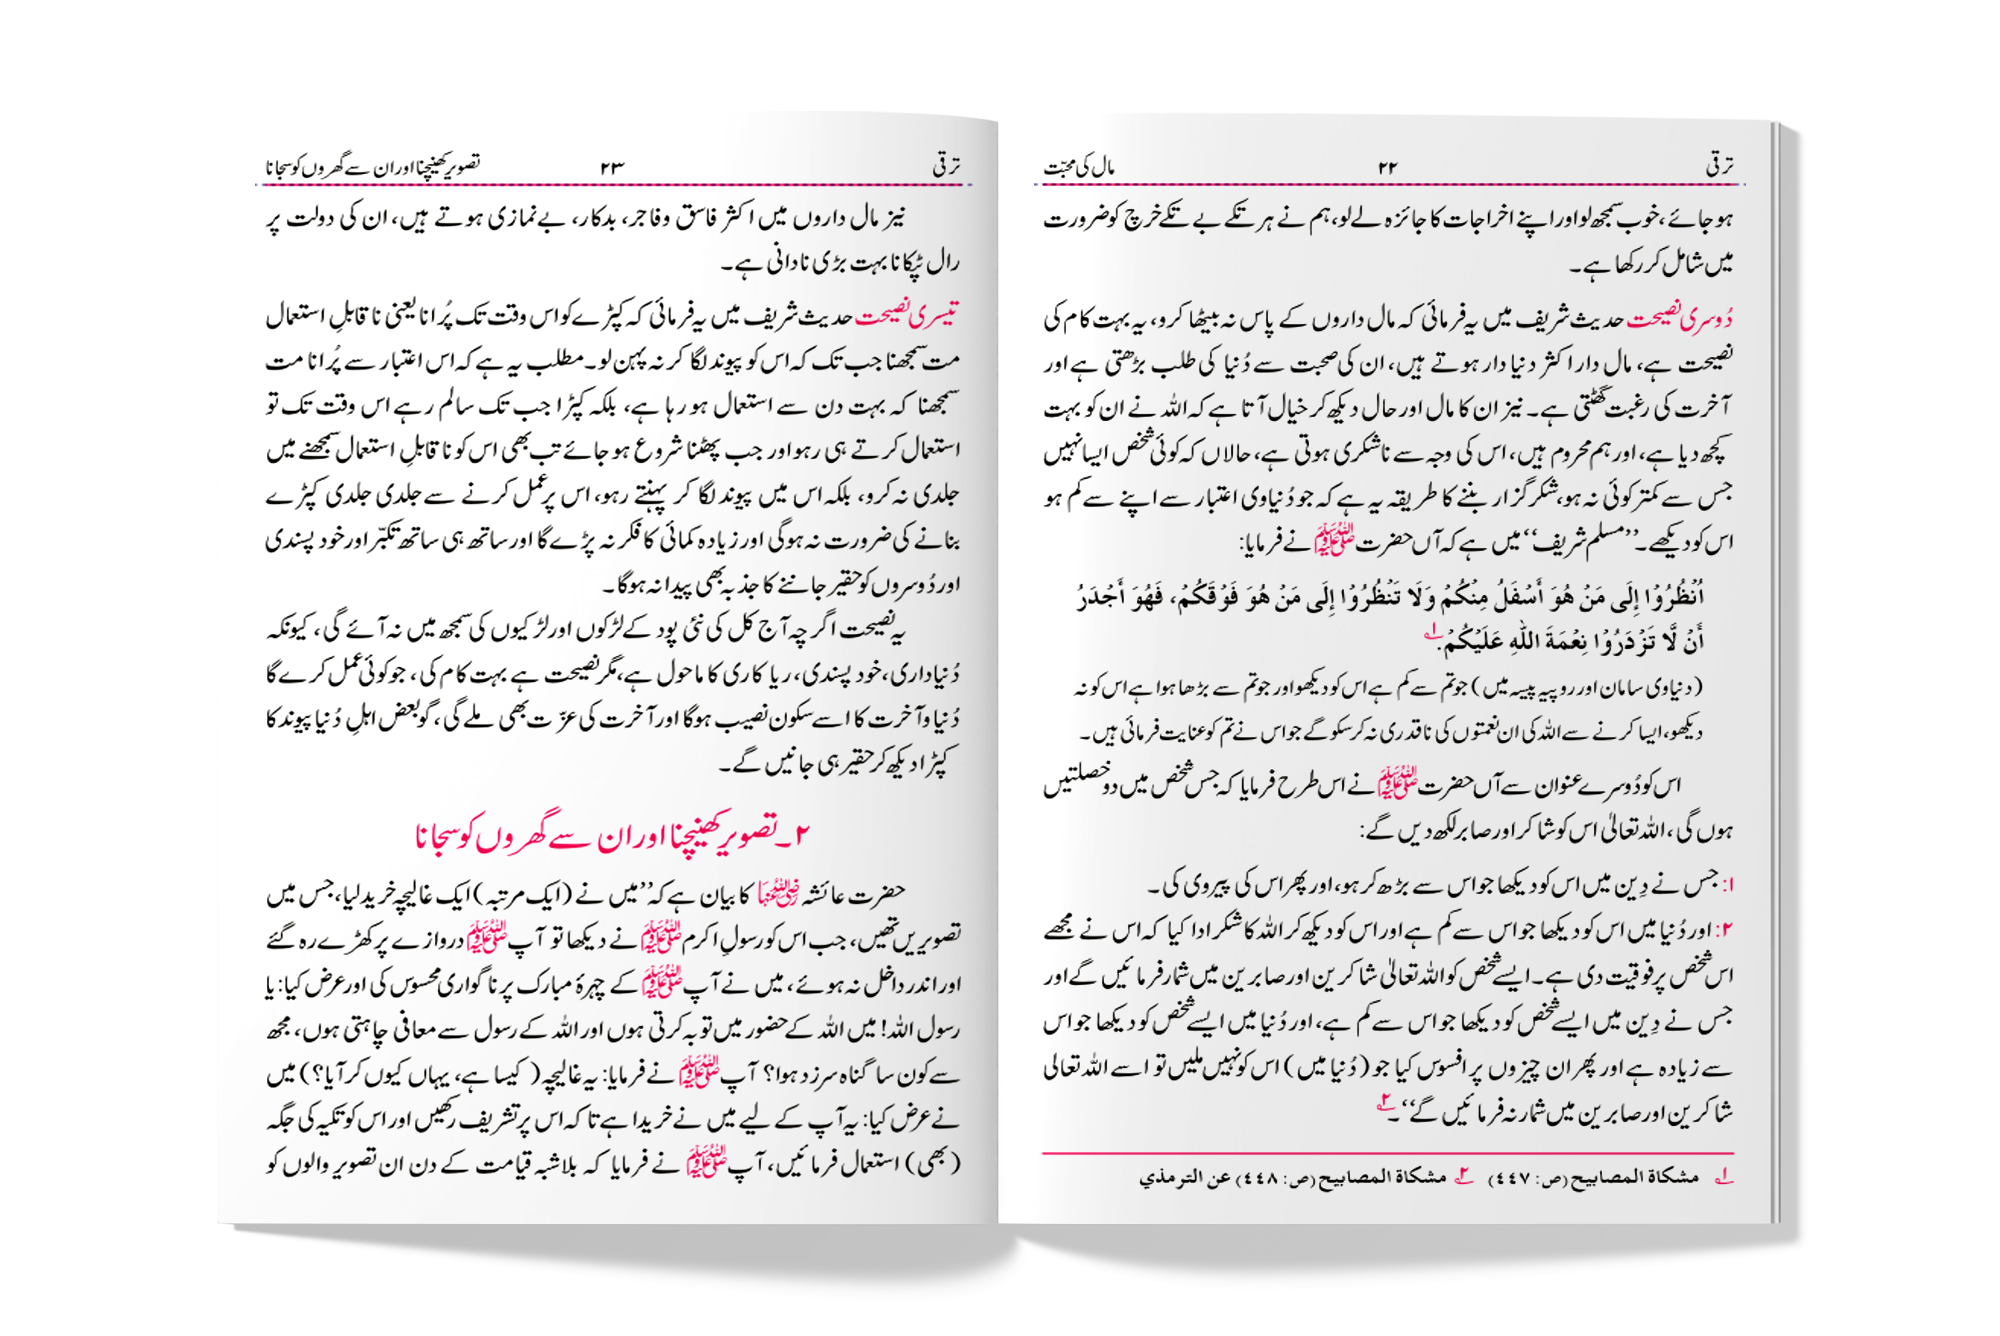 ترقی ۲۲ مال کی محبّت
ہوجائے، خوب سمجھ لو اور اپنے اخراجات کا جائزہ لے لو، ہم نے ہر تکے بے تکے خرچ کو ضرورت
میں شامل کر رکھا ہے۔
دُوسری نصیحت حدیث شریف میں یہ فرمائی کہ مال داروں کے پاس نہ بیٹھا کرو، یہ بہت کام کی
نصیحت ہے، مال دار اکثر دنیا دار ہوتے ہیں، ان کی صحبت سے دُنیا کی طلب بڑھتی ہے اور
آخرت کی رغبت گھٹتی ہے۔ نیز ان کا مال اور حال دیکھ کر خیال آتا ہے کہ اللہ نے ان کو بہت
کچھ دیا ہے، اور ہم محروم ہیں، اس کی وجہ سے ناشکری ہوتی ہے، حالاں کہ کوئی شخص ایسا نہیں
جس سے کمتر کوئی نہ ہو، شکر گزار بننے کا طریقہ یہ ہے کہ جو دُنیاوی اعتبار سے اپنے سے کم ہو
اس کو دیکھے۔ ’’مسلم شریف‘‘ میں ہے کہ آں حضرت ﷺ نے فرمایا:
اُنْظُرُوْا إِلَى مَنْ هُوَ أَسْفَلُ مِنْكُمْ وَلَا تَنْظُرُوْا إِلَى مَنْ هُوَ فَوْقَكُمْ، فَهُوَ أَجْدَرُ
أَنْ لَّا تَزْدَرُوْا نِعْمَةَ اللّٰهِ عَلَيْكُمْ.۱
(دنیاوی سامان اور روپیہ پیسہ میں) جو تم سے کم ہے اس کو دیکھو اور جو تم سے بڑھا ہوا ہے اس کو نہ
دیکھو، ایسا کرنے سے اللہ کی ان نعمتوں کی ناقدری نہ کر سکو گے جو اس نے تم کو عنایت فرمائی ہیں۔
اس کو دُوسرے عنوان سے آں حضرت ﷺ نے اس طرح فرمایا کہ جس شخص میں دو خصلتیں
ہوں گی، اللہ تعالیٰ اس کو شاکر اور صابر لکھ دیں گے:
۱: جس نے دِین میں اس کو دیکھا جو اس سے بڑھ کر ہو، اور پھر اس کی پیروی کی۔
۲: اور دُنیا میں اس کو دیکھا جو اس سے کم ہے اور اس کو دیکھ کر اللہ کا شکر ادا کیا کہ اس نے مجھے
اس شخص پر فوقیت دی ہے۔ ایسے شخص کو اللہ تعالیٰ شاکرین اور صابرین میں شمار فرمائیں گے اور
جس نے دِین میں ایسے شخص کو دیکھا جو اس سے کم ہے، اور دُنیا میں ایسے شخص کو دیکھا جو اس
سے زیادہ ہے اور پھر ان چیزوں پر افسوس کیا جو (دُنیا میں) اس کو نہیں ملیں تو اسے اللہ تعالی
شاکرین اور صابرین میں شمار نہ فرمائیں گے‘‘۔۲
۱ مشكاة المصابيح (ص: ٤٤٧) ۲ مشكاة المصابيح (ص: ٤٤٨) عن الترمذي
ترقی ۲۳ تصویر کھینچنا اور ان سے گھروں کو سجانا
نیز مال داروں میں اکثر فاسق وفاجر، بدکار، بے نمازی ہوتے ہیں، ان کی دولت پر
رال ٹپکانا بہت بڑی نادانی ہے۔
تیسری نصیحت حدیث شریف میں یہ فرمائی کہ کپڑے کو اس وقت تک پُرانا یعنی ناقابلِ استعمال
مت سمجھنا جب تک کہ اس کو پیوند لگا کر نہ پہن لو۔ مطلب یہ ہے کہ اس اعتبار سے پُرانا مت
سمجھنا کہ بہت دن سے استعمال ہو رہا ہے، بلکہ کپڑا جب تک سالم رہے اس وقت تک تو
استعمال کرتے ہی رہو اور جب پھٹنا شروع ہو جائے تب بھی اس کو ناقابلِ استعمال سمجھنے میں
جلدی نہ کرو، بلکہ اس میں پیوند لگا کر پہنتے رہو، اس پر عمل کرنے سے جلدی جلدی کپڑے
بنانے کی ضرورت نہ ہوگی اور زیادہ کمائی کا فکر نہ پڑے گا اور ساتھ ہی ساتھ تکبّر اور خود پسندی
اور دُوسروں کو حقیر جاننے کا جذبہ بھی پیدا نہ ہوگا۔
یہ نصیحت اگرچہ آج کل کی نئی پود کے لڑکوں اور لڑکیوں کی سمجھ میں نہ آئے گی، کیونکہ
دُنیاداری، خود پسندی، ریا کاری کا ماحول ہے، مگر نصیحت ہے بہت کام کی، جو کوئی عمل کرے گا
دُنیا وآخرت کا اسے سکون نصیب ہوگا اور آخرت کی عزّت بھی ملے گی، گو بعض اہلِ دُنیا پیوند کا
کپڑا دیکھ کر حقیر ہی جانیں گے۔
۲۔ تصویر کھینچنا اور ان سے گھروں کو سجانا
حضرت عائشہ رضی اللہ عنہا کا بیان ہے کہ ’’میں نے (ایک مرتبہ) ایک غالیچہ خرید لیا، جس میں
تصویریں تھیں، جب اس کو رسولِ اکرم ﷺ نے دیکھا تو آپ ﷺ دروازے پر کھڑے رہ گئے
اور اندر داخل نہ ہوئے، میں نے آپ ﷺ کے چہرۂ مبارک پر ناگواری محسوس کی اور عرض کیا: یا
رسول اللہ! میں اللہ کے حضور میں توبہ کرتی ہوں اور اللہ کے رسول سے معافی چاہتی ہوں، مجھ
سے کون سا گناہ سرزد ہوا؟ آپ ﷺ نے فرمایا: یہ غالیچہ (کیسا ہے، یہاں کیوں کر آیا؟) میں
نے عرض کیا: یہ آپ کے لیے میں نے خریدا ہے تاکہ اس پر تشریف رکھیں اور اس کو تکیہ کی جگہ
(بھی) استعمال فرمائیں، آپ ﷺ نے فرمایا کہ بلاشبہ قیامت کے دن ان تصویر والوں کو